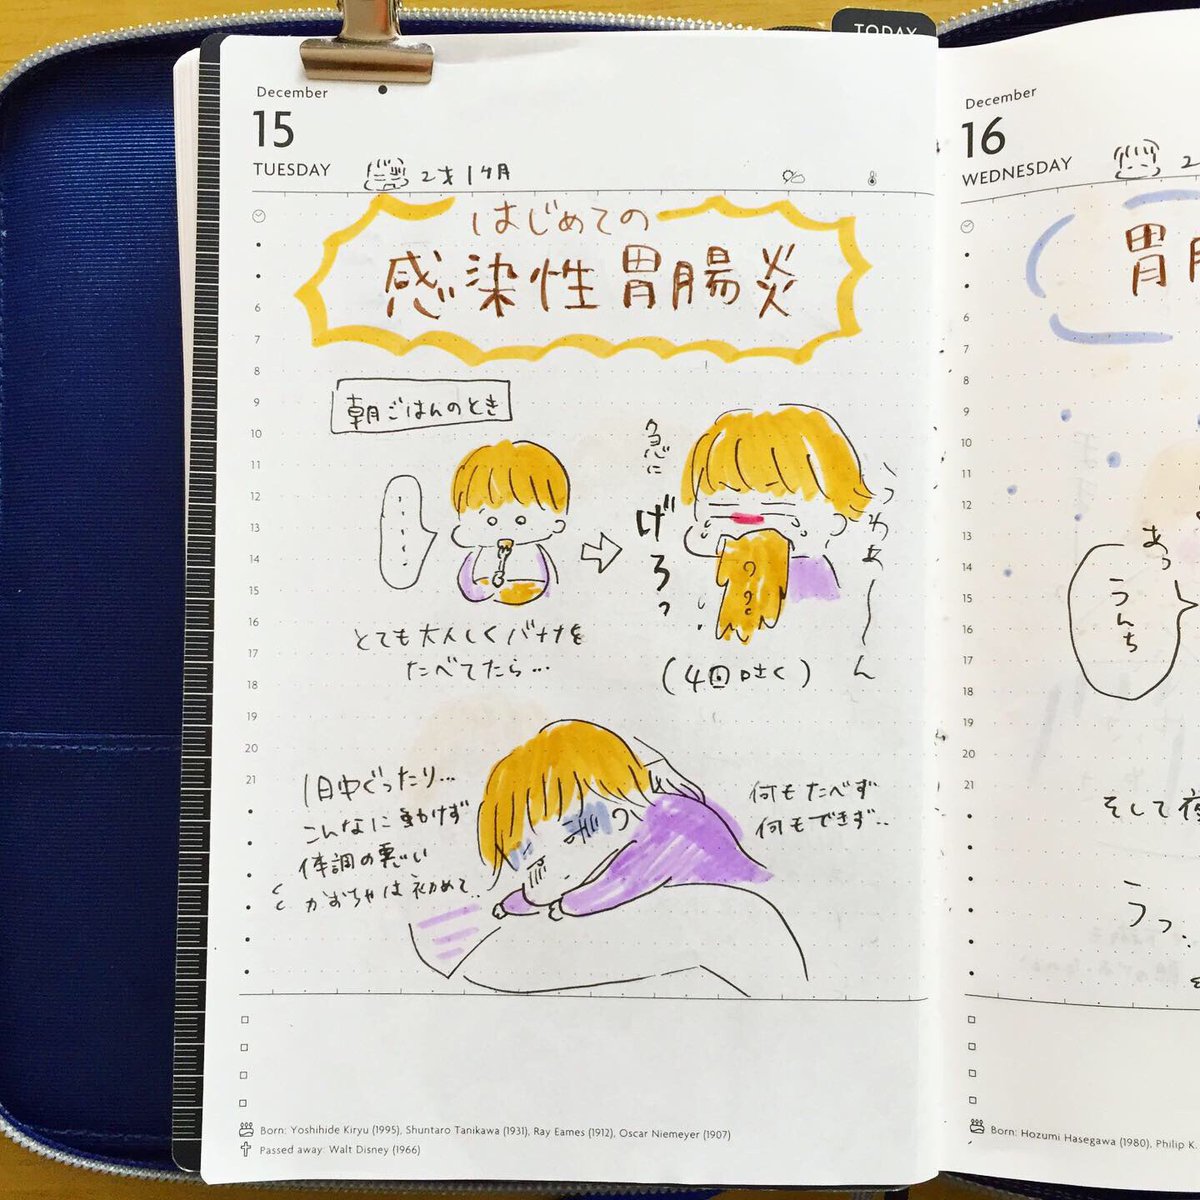 TODAY
December
15
TUESDAY
2才1ヶ月
はじめての
感染性胃腸炎
6
7
8
9
10
11
12
13
14
15
16
17
18
19
20
21
朝ごはんのとき
・・・・・
とても大人しくバナナを
たべてたら…
急に
げろっ
うわぁーーん
(4回ほど)
1日中ぐったり…
こんなに動けず
体調の悪い
は初めて..
何もたべず
何もできず..
Born: Yoshihide Kiryu (1995), Shuntaro Tanikawa (1931), Ray Eames (1912), Oscar Niemeyer (1907)
Passed away: Walt Disney (1966)
December
16
WEDNESDAY
2
胃
6
7
8
9
10
11
12
13
14
15
16
17
18
19
20
21
あっ
うんち
そして
うっ..
Born: Hozumi Hasegawa (1980), Philip K.